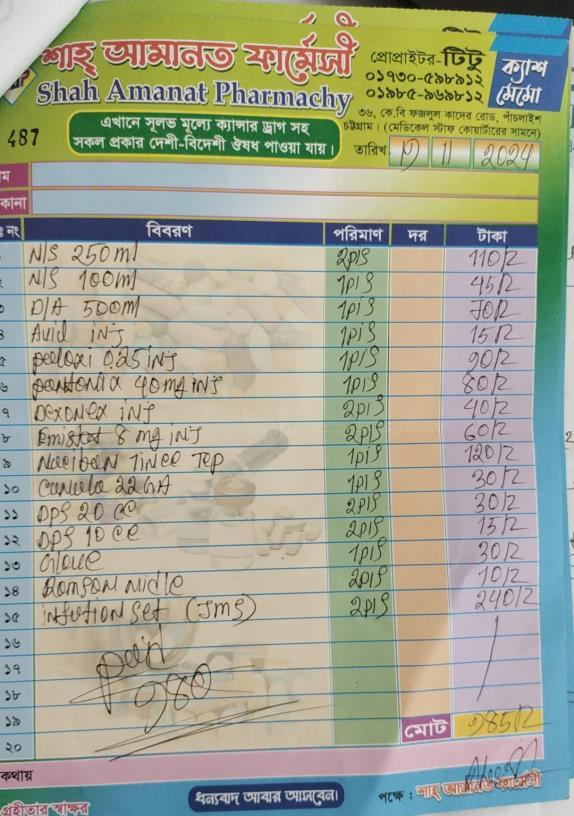 শাহ্ আমানত ফার্মেসী
Shah Amanat Pharmacy
প্রোপ্রাইটর-টিটু
০১৭৩০-৫৯৮৯১২
০১৯৮৫-৯৬৯৮১২
ক্যাশ মেমো
৩৬, কে,বি ফজলুল কাদের রোড, পাঁচলাইশ
চট্টগ্রাম। (মেডিকেল স্টাফ কোয়ার্টারের সামনে)
এখানে সূলভ মূল্যে ক্যান্সার ড্রাগ সহ
সকল প্রকার দেশী-বিদেশী ঔষধ পাওয়া যায়।
487
তারিখ 11 2024
ম
কানা
ঃ নং বিবরণ পরিমাণ দর টাকা
N/S 250ml 2pis 110/2
N/S 100ml 1pis 45/2
D/A 500ml 1pis 70/2
৪ Avid inj 1pis 15/2
৫ 0.25 inj 1pis 90/2
৬ pantonix 40mg inj 1pis 80/2
৭ Dexonex inj 2pis 40/2
৮ Emistat 8 mg inj 2pis 60/2
৯ 1pis 120/2
১০ Canula 22GA 1pis 30/2
১১ DPS 20 cc 2pis 30/2
১২ DPS 10 cc 2pis 15/2
১৩ Glove 1pis 30/2
১৪ Romson nidle 2pis 10/2
১৫ infution set (JMS) 2pis 240/2
১৬
১৭ paid
১৮ 980
১৯ মোট 985/2
২০
কথায়
গ্রহীতার স্বাক্ষর
ধন্যবাদ আবার আসবেন।
পক্ষে : শাহ্ আমানত ফার্মেসী